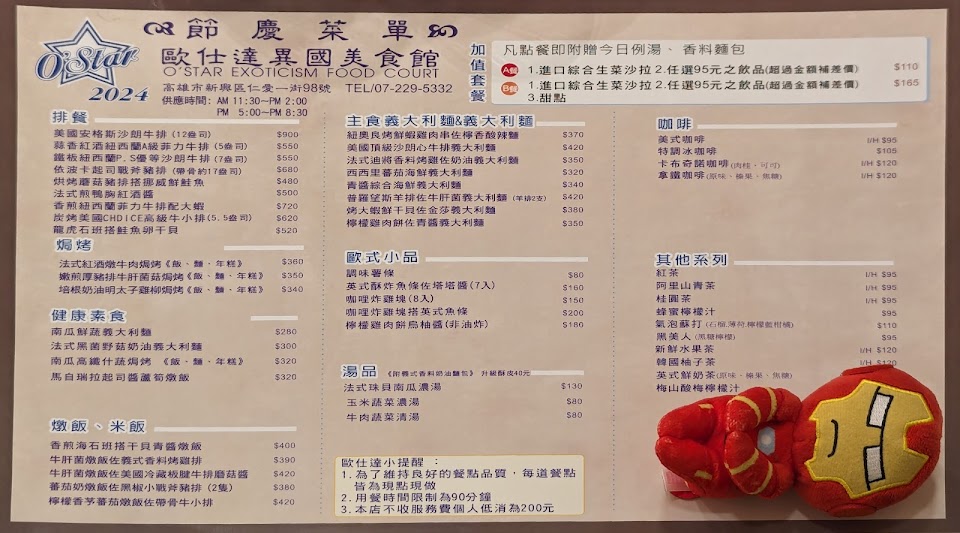 O'Star
2024
節慶菜單
歐仕達異國美食館
O'STAR EXOTICISM FOOD COURT
高雄市新興區仁愛一街98號 TEL/07-229-5332
供應時間: AM 11:30~PM 2:00
PM 5:00~PM 8:30
加值套餐
凡點餐即附贈今日例湯、香料麵包
A餐 1.進口綜合生菜沙拉 2.任選95元之飲品(超過金額補差價) $110
B餐 1.進口綜合生菜沙拉 2.任選95元之飲品(超過金額補差價) $165
3.甜點
排餐
美國安格斯沙朗牛排 (12盎司) $900
蒜香紅酒紐西蘭A級菲力牛排 (5盎司) $550
鐵板紐西蘭P.S優等沙朗牛排 (7盎司) $550
依波卡起司戰斧豬排 (帶骨約17盎司) $680
烘烤蘑菇豬排搭挪威鮭魚 $480
法式煎鴨胸紅酒醬 $500
香煎紐西蘭菲力牛排配大蝦 $720
炭烤美國CHOICE高級牛小排 (5.5盎司) $620
龍虎石班搭鮭魚卵干貝 $520
焗烤
法式紅酒燉牛肉焗烤《飯、麵、年糕》 $360
嫩煎厚豬排牛肝菌菇焗烤《飯、麵、年糕》 $350
培根奶油明太子雞柳焗烤《飯、麵、年糕》 $340
健康素食
南瓜鮮蔬義大利麵 $280
法式黑菌野菇奶油義大利麵 $300
南瓜高纖什蔬焗烤 《飯、麵、年糕》 $320
馬自瑞拉起司醬蘆筍燉飯 $320
燉飯、米飯
香煎海石班搭干貝青醬燉飯 $400
牛肝菌燉飯佐義式香料烤雞排 $390
牛肝菌燉飯佐美國冷藏板腱牛排磨菇醬 $420
蕃茄奶燉飯佐黑椒小戰斧豬排 (2隻) $380
檸檬香芧蕃茄燉飯佐帶骨牛小排 $420
主食義大利麵&義大利麵
紐奧良烤鮮蝦雞肉串佐檸香酸辣麵 $370
美國頂級沙朗心牛排義大利麵 $420
法式迪將香料烤雞佐奶油義大利麵 $350
西西里蕃茄海鮮義大利麵 $320
青醬綜合海鮮義大利麵 $340
普羅望斯羊排佐牛肝菌義大利麵 (羊排2支) $420
烤大蝦鮮干貝佐金莎義大利麵 $380
檸檬雞肉餅佐青醬義大利麵 $350
歐式小品
調味薯條 $80
英式酥炸魚條佐塔塔醬 (7入) $160
咖哩炸雞塊 (8入) $150
咖哩炸雞塊搭英式魚條 $200
檸檬雞肉餅烏柚醬 (非油炸) $180
湯品 《附義式香料奶油麵包》 升級酥皮40元
法式珠貝南瓜濃湯 $130
玉米蔬菜濃湯 $80
牛肉蔬菜清湯 $80
歐仕達小提醒：
1.為了維持良好的餐點品質，每道餐點
皆為現點現做
2.用餐時間限制為90分鐘
3.本店不收服務費個人低消為200元
咖啡
美式咖啡 I/H $95
特調冰咖啡 $105
卡布奇諾咖啡 (肉桂、可可) I/H $120
拿鐵咖啡 (原味、榛果、焦糖) I/H $120
其他系列
紅茶 I/H $95
阿里山青茶 I/H $95
桂圓茶 I/H $95
蜂蜜檸檬汁 $95
氣泡蘇打 (石榴.薄荷.檸檬藍柑橘) $110
黑美人 (黑糖檸檬) $95
新鮮水果茶 I/H $120
韓國柚子茶 I/H $120
英式鮮奶茶 (原味、榛果、焦糖)
梅山酸梅檸檬汁